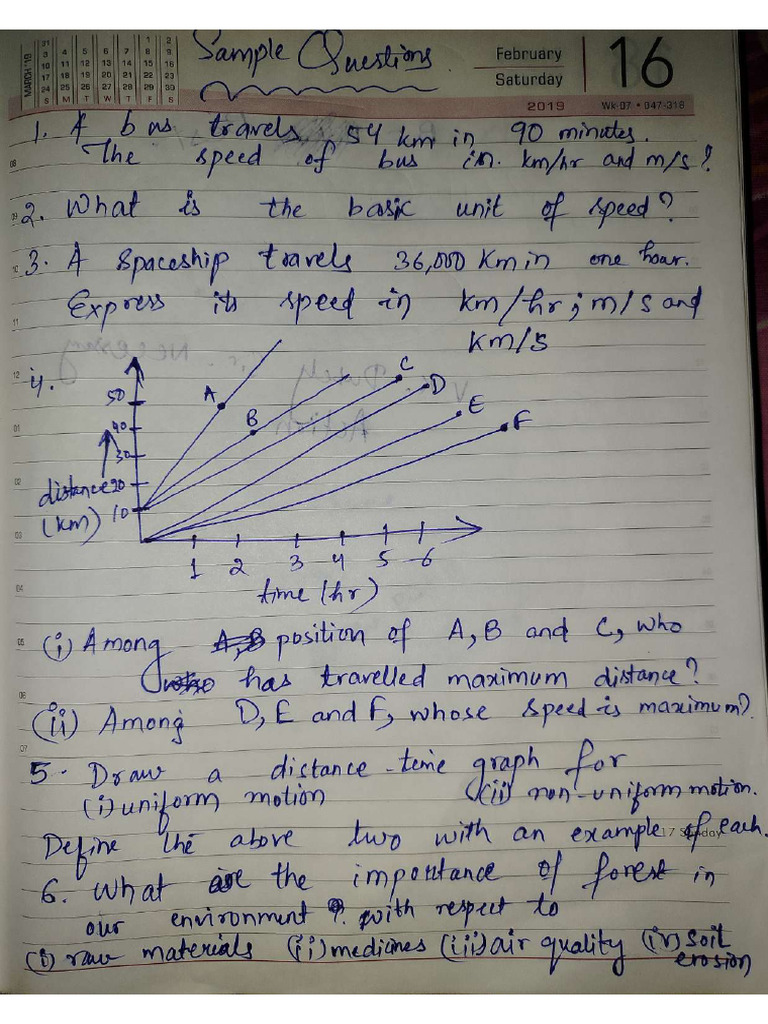 MARCH '19
31
3 10 17 24 S
4 11 18 25 M
5 12 19 26 T
6 13 20 27 W
7 14 21 28 T
1 8 15 22 29 F
2 9 16 23 30 S
Sample Questions
February
Saturday
16
2019 Wk-07 • 047-318
1. A bus travels 54 km in 90 minutes.
08 The speed of bus in. km/hr and m/s?
09 2. What is the basic unit of speed?
10 3. A Spaceship travels 36,000 Km in one hour.
11 Express its speed in km/hr; m/s and
Km/s
12
4.
50
40
30
20
10
01
02
03
04
distance
(km)
A
B
C
D
E
F
1 2 3 4 5 6
time (hr)
05 (i) Among A,B position of A, B and C, who
06 who has travelled maximum distance?
(ii) Among D, E and F, whose speed is maximum?
07
5. Draw a distance-time graph for
(i) uniform motion (ii) non-uniform motion.
Define the above two with an example of each.
17 Sunday
6. What are the importance of forest in
our environment ? with respect to
(i) raw materials (ii) medicines (iii) air quality (iv) soil
erosion